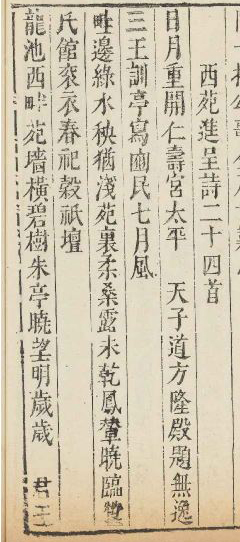 西苑進呈詩二十四首
日月重開仁壽宮太平 天子道方隆殿題無逸
三王訓亭寫豳民七月風
畦邊綠水秧猶淺苑裏柔桑露未乾鳳輦曉臨
氏館袞衣春祀穀祇壇
龍池西畔苑墻橫碧樹朱亭曉望明歲歲 君王